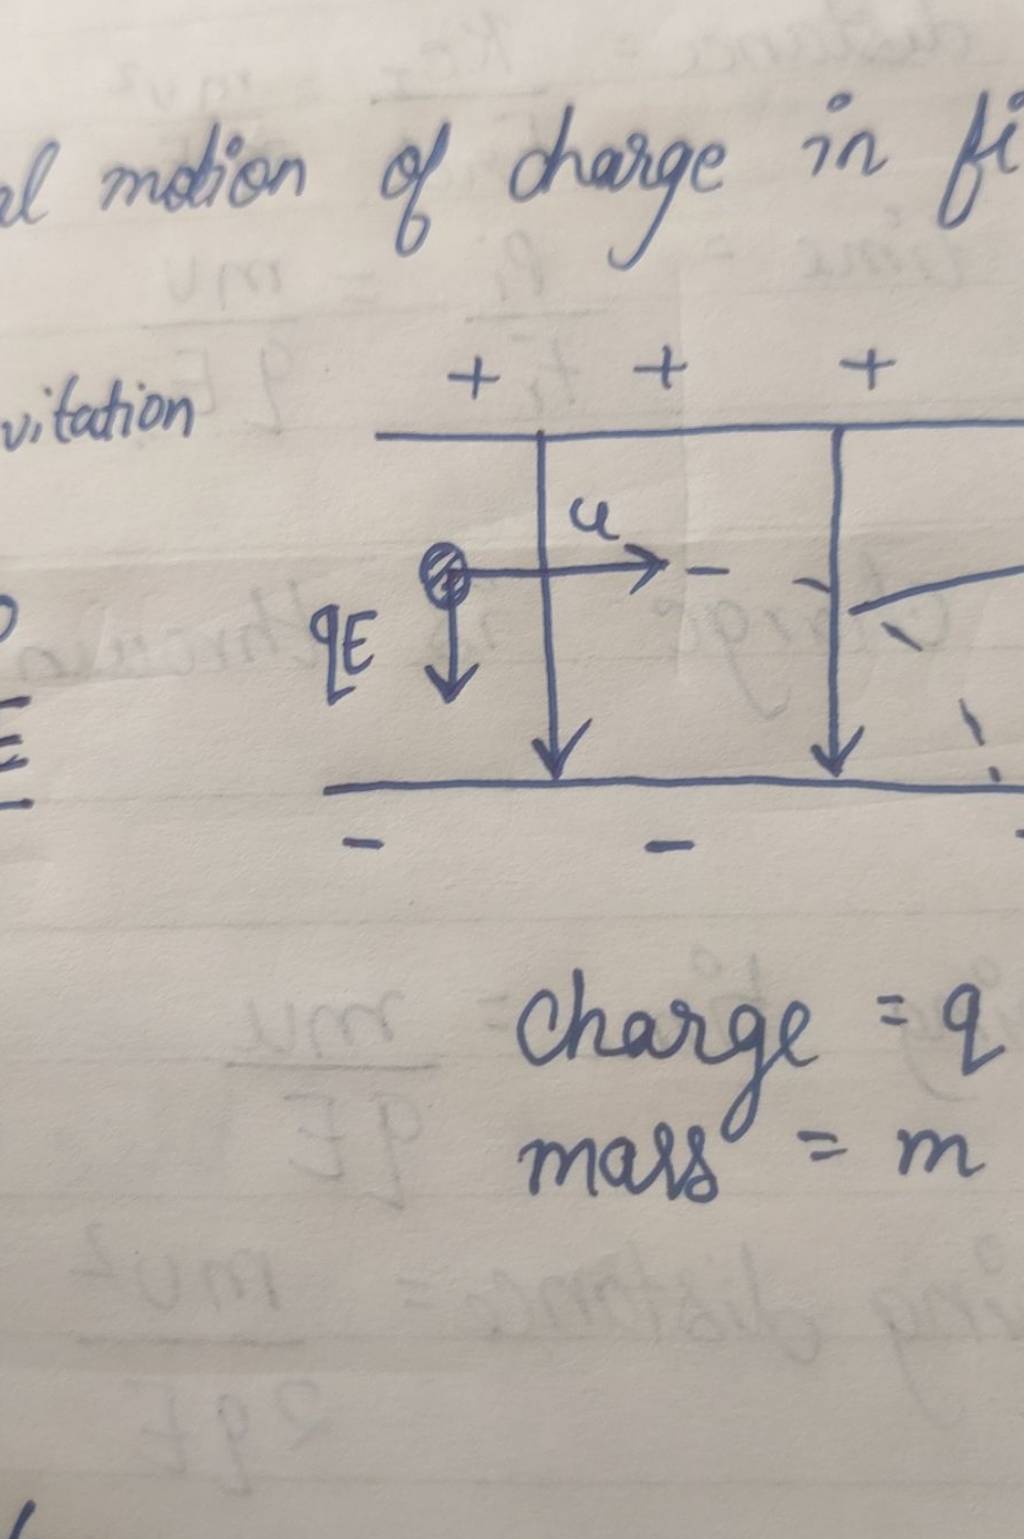 al motion of charge in fi
vitation
+ + +
u
qE
- -
charge = q
mass = m